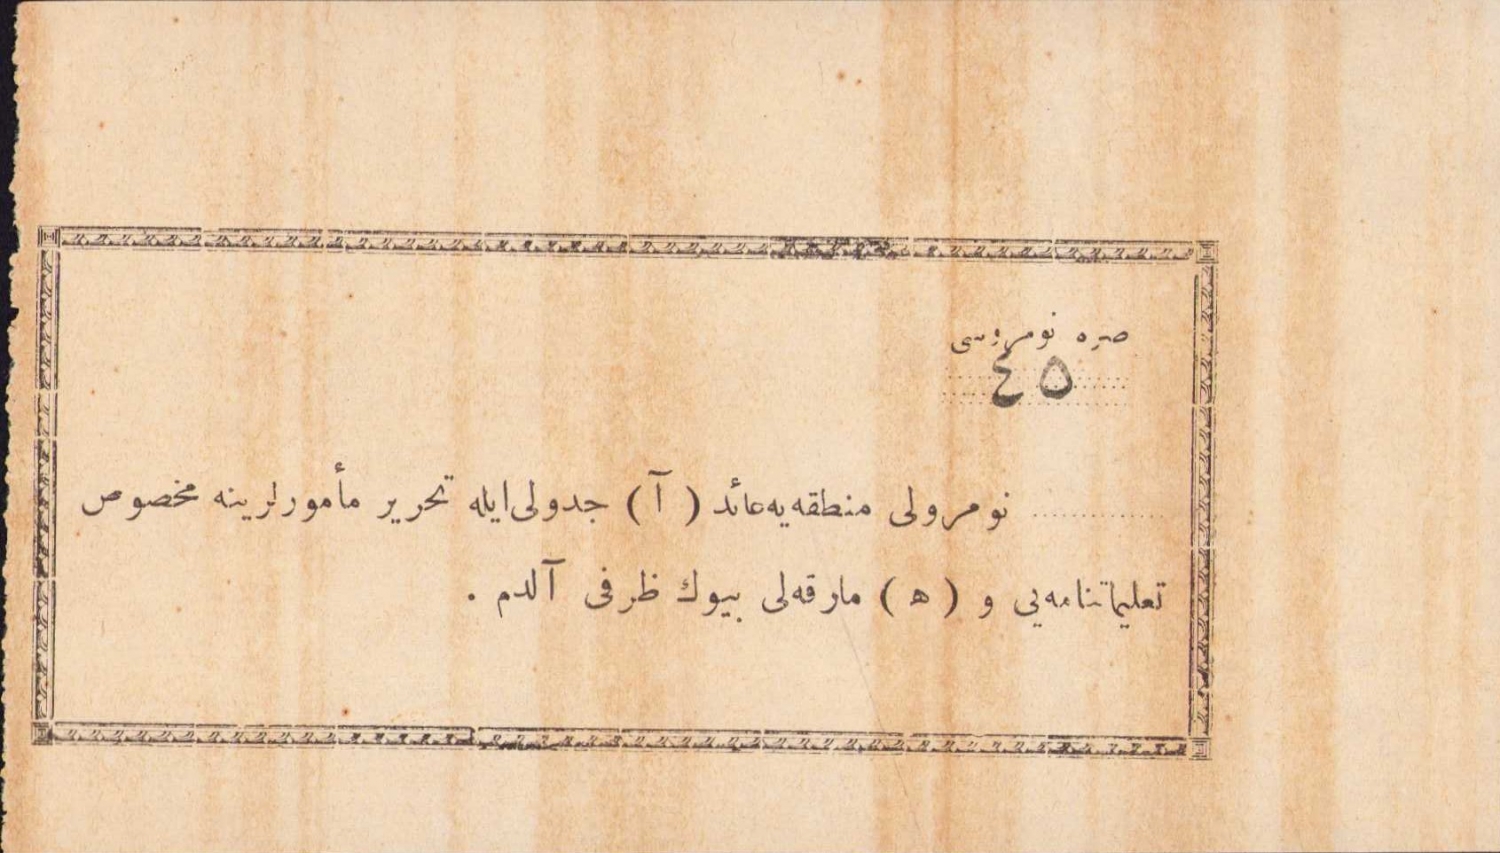 صره نومروسی
٤٥
............ نومرولی منطقه‌یه عائد ( آ ) جدولی ایله تحریر مأمورلرینه مخصوص
تعلیماتنامه‌یی و ( ه ) مارقه‌لی بیوك ظرفی آلدم .